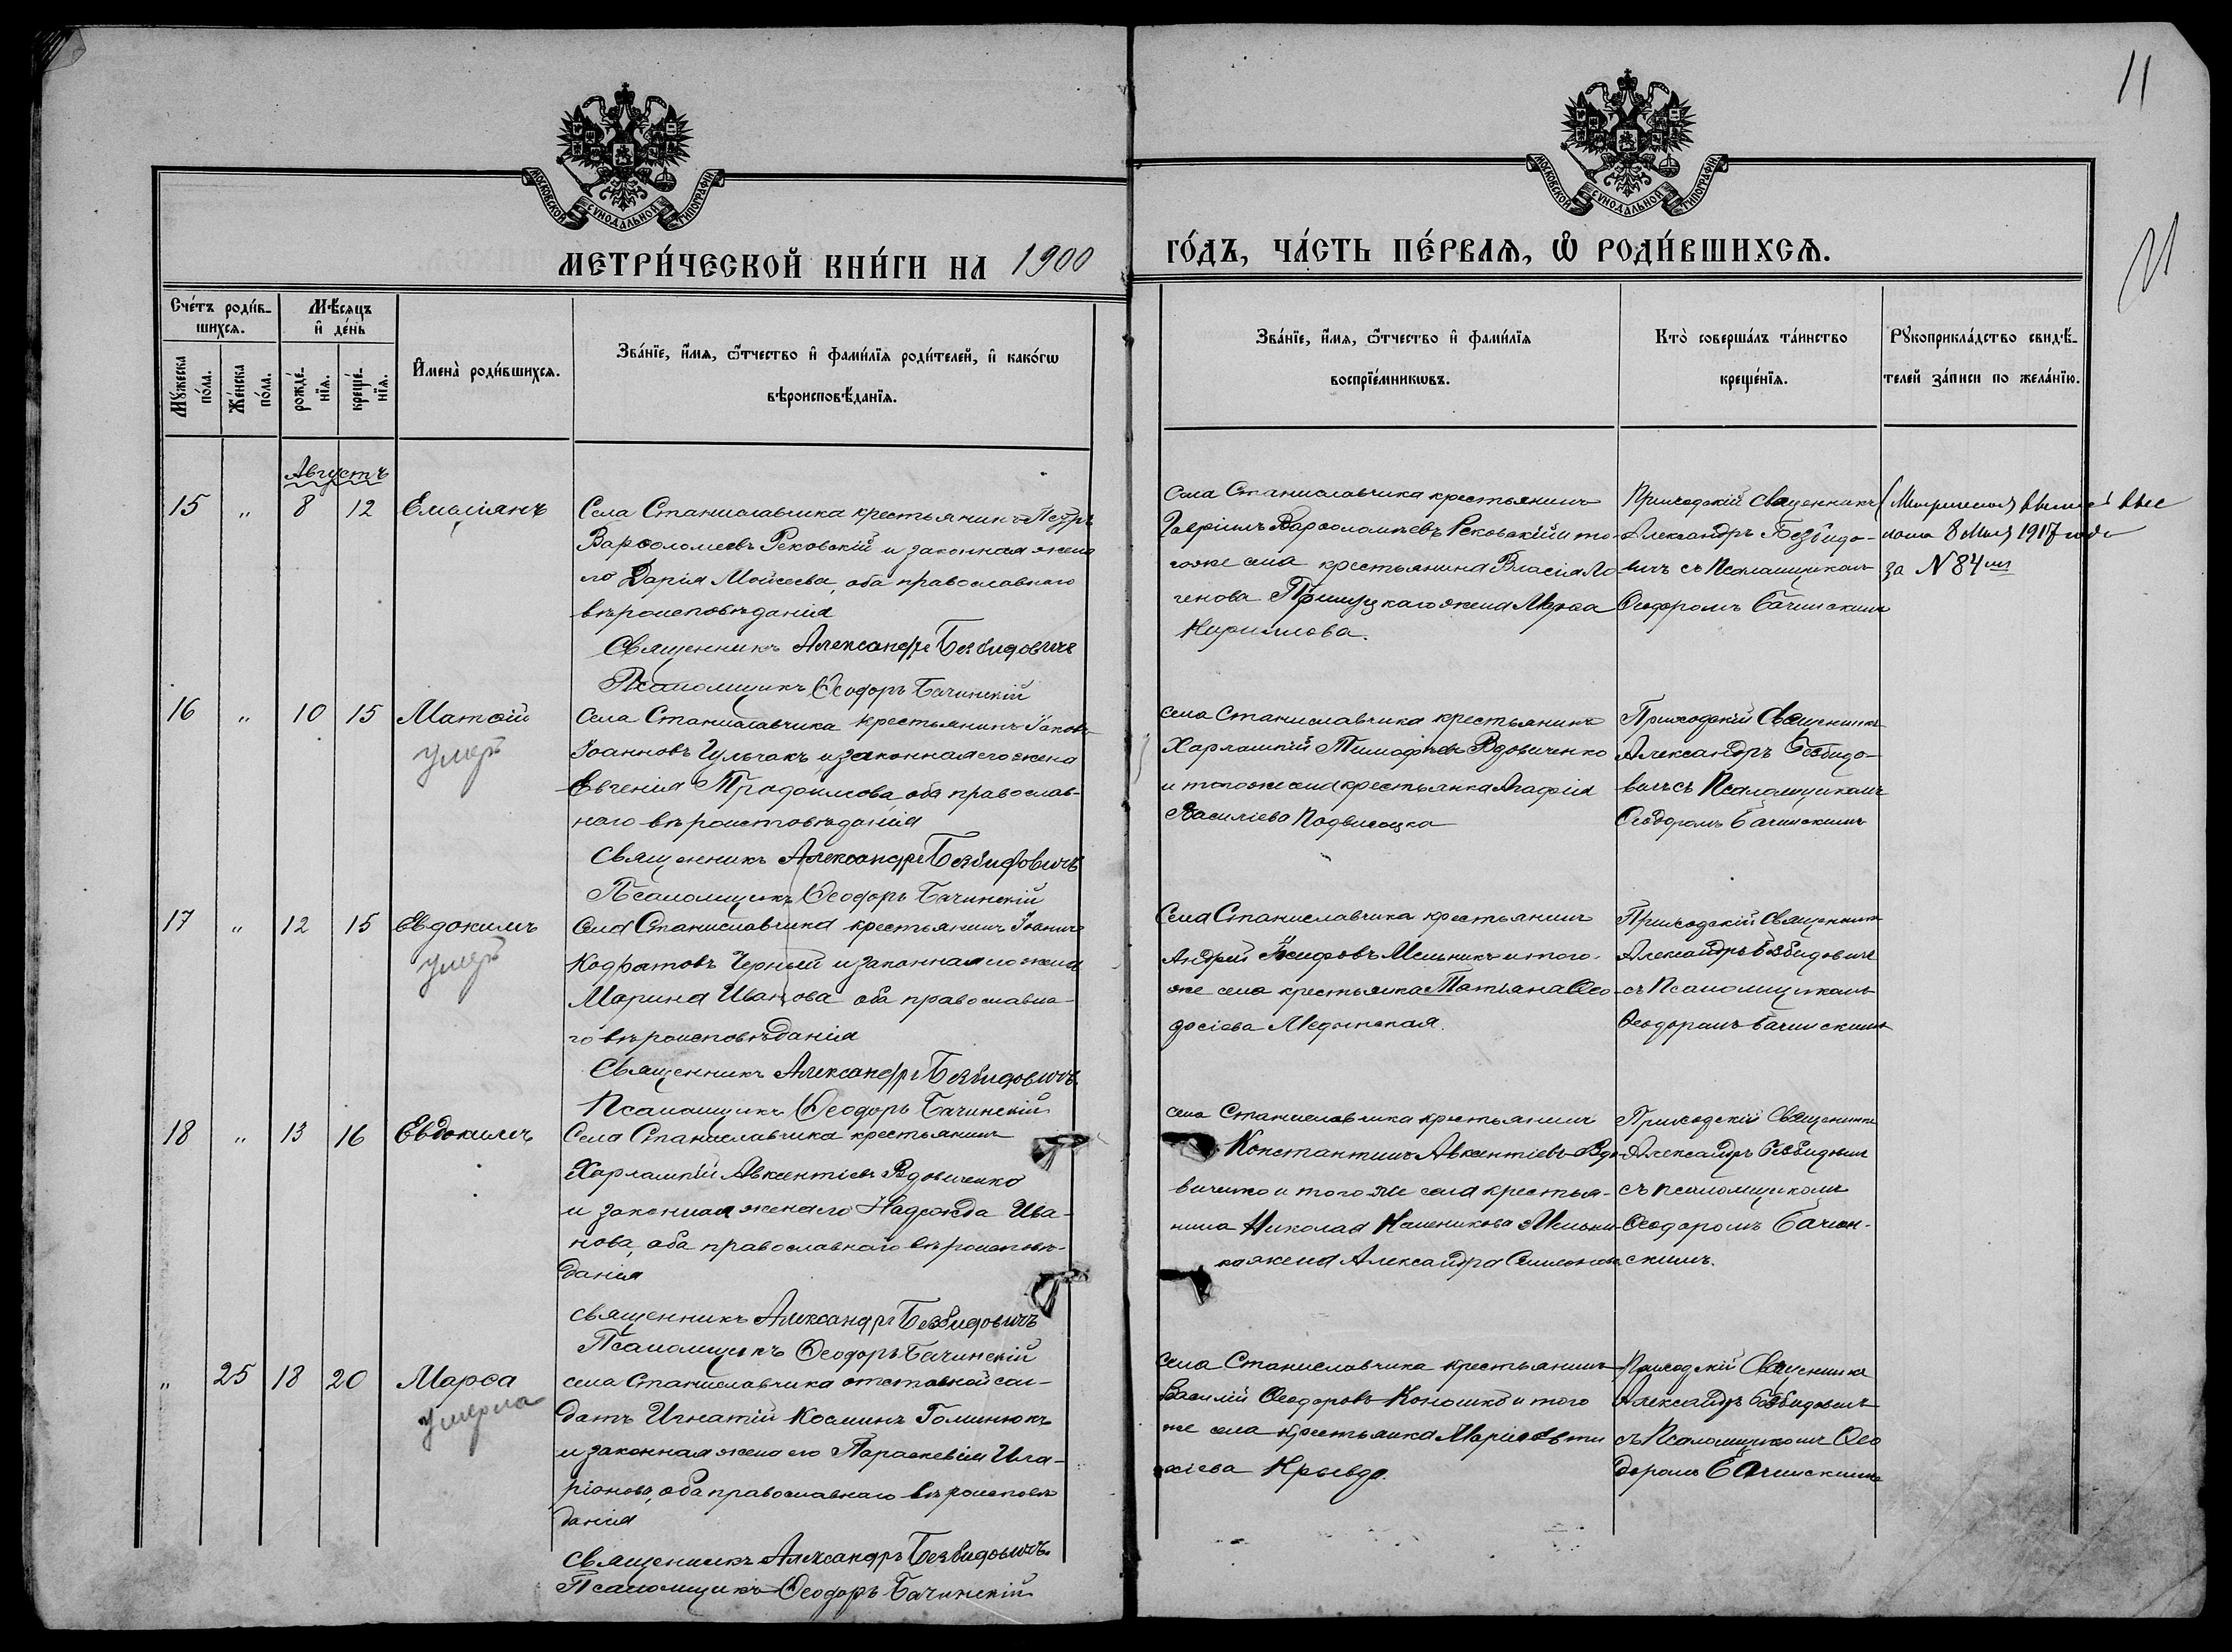 11
МОСКОВСКОЙ СУНОДАЛЬНОЙ ТИПОГРАФІИ
МОСКОВСКОЙ СУНОДАЛЬНОЙ ТИПОГРАФІИ
МЕТРИ́ЧЕСКОЙ КНИ́ГИ НА 1900
ГО́ДЪ, ЧА́СТЬ ПЕ́РВАѦ, Ѡ҆ РОДИ́ВШИХСѦ.
Сче́тъ роди́в-
шихсѧ.
Мꙋ́жеска
по́ла.
Же́нска
по́ла.
Мѣ́сяцъ
и҆ де́нь
рожде́-
нїѧ.
креще́-
нїѧ.
И҆мена̀ роди́вшихсѧ.
Зва́нїе, и҆́мѧ, ѻ҆́тчество и҆ фами́лїѧ роди́телей, и҆ како́гѡ
вѣроисповѣ́данїѧ.
Зва́нїе, и҆́мѧ, ѻ҆́тчество и҆ фами́лїѧ
воспрїе́мникѡвъ.
Кто̀ соверша́лъ та́инство
креще́нїѧ.
Рꙋкоприкла́дство свидѣ́-
телей за́писи по жела́нїю.
Августъ
15 " 8 12 Емиліянъ
Села Станиславчика крестьянинъ Петръ
Варѳоломеевъ Рековскій и законная жена
его Дарія Моисеева, оба православнаго
вѣроисповѣданія
Священникъ Александръ Безвидовичъ
Псаломщикъ Ѳеодоръ Бачинскій
Села Станиславчика крестьянинъ
Гавріилъ Варѳоломѣевъ Рековскій и то-
гоже села крестьянина Власія Ло-
генова жена Марѳа
Кириллова.
Приходскій Священникъ
Александръ Безвидо-
вичъ съ Псаломщикомъ
Ѳеодоромъ Бачинскимъ
8 Мая 1917 года
за N 84
16 " 10 15 Матѳій
умеръ
Села Станиславчика крестьянинъ Іаковъ
Іоанновъ Цульчакъ и законная его жена
Евгенія оба православ-
наго вѣроисповѣданія
Священникъ Александръ Безвидовичъ
Псаломщикъ Ѳеодоръ Бачинскій
Села Станиславчика крестьянинъ
Харлампій Тимофѣевъ Вдовиченко
и тогоже села крестьянка Агафія
Василіева Подвысоцка
Приходскій Священникъ
Александръ Безвидо-
вичъ съ Псаломщикомъ
Ѳеодоромъ Бачинскимъ
17 " 12 15 Евдокимъ
умеръ
Села Станиславчика крестьянинъ Іоаннъ
Кодратовъ Черный и законная его жена
Марина Иванова оба православна-
го вѣроисповѣданія
Священникъ Александръ Безвидовичъ
Псаломщикъ Ѳеодоръ Бачинскій
Села Станиславчика крестьянинъ
Андрей Іосифовъ Мельникъ и того-
же села крестьянка Татіана Ѳео-
досіева Медынская.
Приходскій Священникъ
Александръ Безвидовичъ
съ Псаломщикомъ
Ѳеодоромъ Бачинскимъ
18 " 13 16 Евдокимъ
Села Станиславчика крестьянинъ
Харлампій Авксентіевъ Вдовиченко
и законная жена его Надежда Ива-
нова, оба православнаго вѣроисповѣ-
данія
Священникъ Александръ Безвидовичъ
Псаломщикъ Ѳеодоръ Бачинскій
Села Станиславчика крестьянинъ
Константинъ Авксентіевъ Вдо-
виченко и того же села крестья-
нина Николая Мельни-
ка жена Александра Симеонова.
Приходскій Священникъ
Александръ Безвидовичъ
съ псаломщикомъ
Ѳеодоромъ Бачин-
скимъ.
" 25 18 20 Марѳа
умерла
Села Станиславчика отставной сол-
датъ Игнатій Косминъ Голинюкъ
и законная жена его Параскевія Ила-
ріонова, оба православнаго вѣроисповѣ-
данія
Священникъ Александръ Безвидовичъ
Псаломщикъ Ѳеодоръ Бачинскій
Села Станиславчика крестьянинъ
Василій Ѳеодоровъ Коношко и того
же села крестьянка Марія
Крывда.
Приходскій Священникъ
Александръ Безвидовичъ
съ Псаломщикомъ Ѳео
доромъ Бачинскимъ